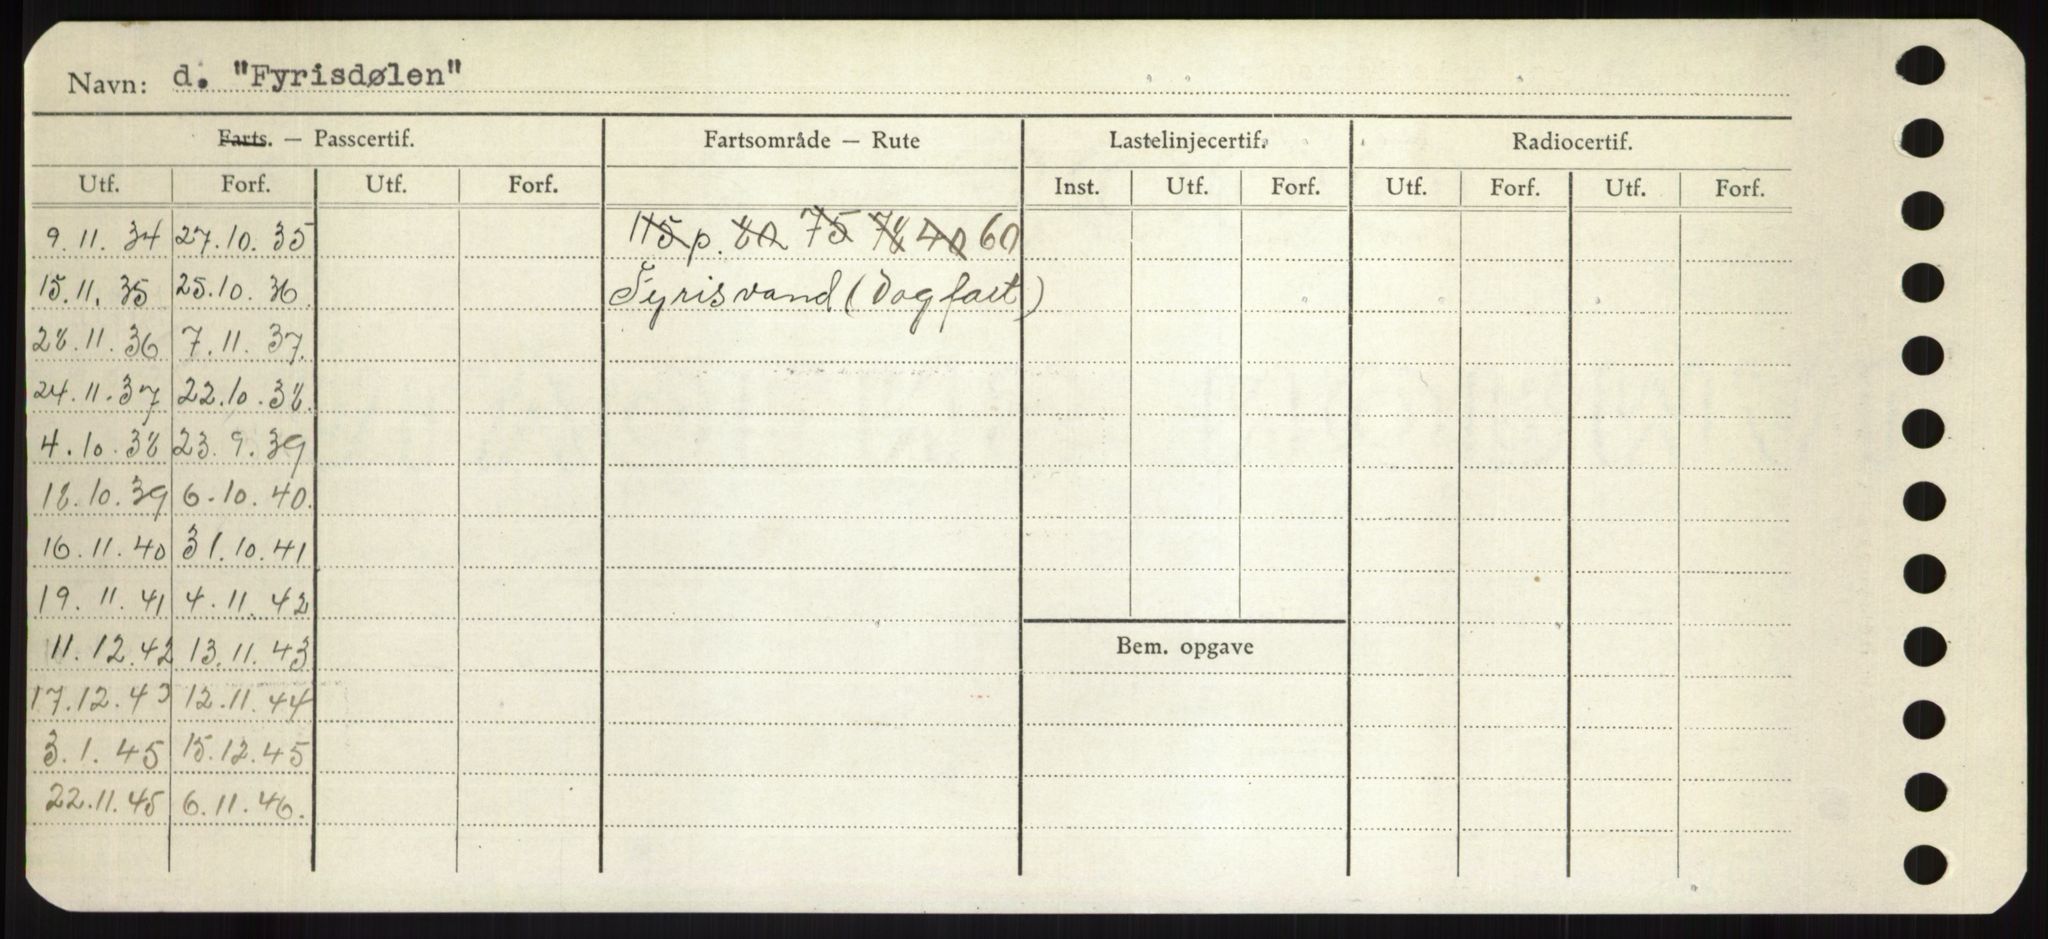 Navn: d. "Fyrisdølen"
Farts. — Passcertif. Fartsområde — Rute Lastelinjecertif. Radiocertif.
Utf. Forf. Utf. Forf. Inst. Utf. Forf. Utf. Forf. Utf. Forf.
9.11.34 27.10.35 115 p. 80 75 78 40 60
15.11.35 25.10.36 Fyrisvand (Dagfart)
28.11.36 7.11.37
24.11.37 22.10.38
4.10.38 23.9.39
18.10.39 6.10.40
16.11.40 31.10.41
19.11.41 4.11.42
11.12.42 13.11.43
Bem. opgave
17.12.43 12.11.44
3.1.45 15.12.45
22.11.45 6.11.46.